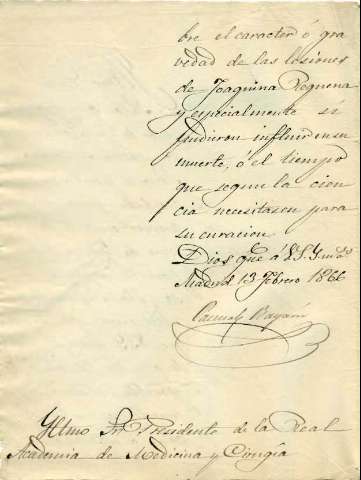 bre el caracter ó gra
vedad de las lesiones
de Joaquina Requena
y especialmente si
pudieron influir en su
muerte, ó el tiempo
que segun la cien
cia necesitasen para
su curacion.
Dios gue á V.S.Y. m.s a.s
Madrid 13 Febrero 1866
Bayarri
Yltmo Sr Presidente de la Real
Academia de Medicina y Cirugía